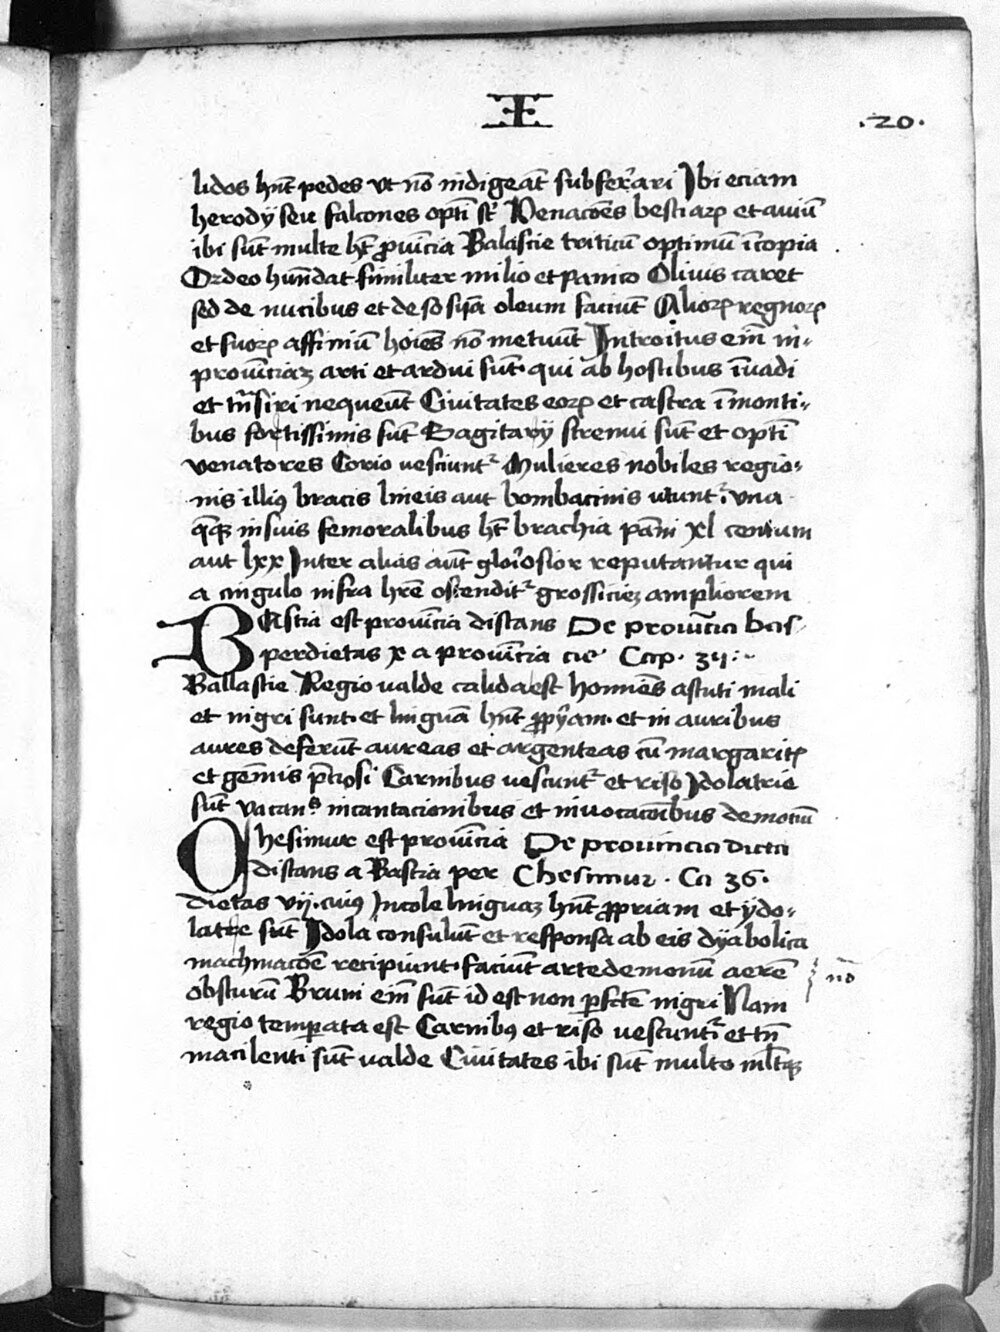 .20.
lidos hn̄t pedes vt nō indigeāt subferrari Ibi eciam
herodÿ seu falcones optī st̄ Venacōes bestiarꝝ et auiū
ibi sūt multe hꝫ ꝓuīcia Balascie triticū optimū ī copia
Ordeo hūndat similiter milio et panico Oliuis caret
sed de nucibus et de sosỹa oleum faciūt Aliorꝝ regnorꝝ
et suorꝝ affiniū hoīes nō metuūt Introitus eīn in
prouīciaꝫ arti et ardui sūt qui ab hostibus īuadi
et tn̄siri nequeūt Ciuitates eorꝝ et castra ī monti-
bus fortissimis sūt Sagitarÿ strenui sūt et optī
venatores Corio vesciunt᷑ Mulieres nobiles regio-
nis illiꝰ bracis lineis aut bombacinis vtunt᷑ vna
qꝫqꝫ in suis femoralibus hꝫ brachia pāni xl centum
aut lxx Inter alias aūt glōiosior reputantur qui
a cingulo infra hr̄e ostendit᷑ grossicieꝫ ampliorem
BAstia est prouīcia distans De prouīcia bas
per dietas x a prouīcia cie Cap. 35.
Ballastie Regio valde calida est homīes astuti mali
et nigri sunt et linguā hn̄t ꝓpȳam et in auribus
aures deferūt aureas et argenteas cū margaritꝭ
et gēmis p̄ciosi Carnibus vescunt᷑ et riso Idolatrie
sūt vacan̄s incantacionibus et inuocacōibus demoniū
Chesimur est prouīcia De prouincia dicta
distans a Bastia per Chesimur . Ca 36.
dietas vij. cuiꝰ Incole linguaꝫ hn̄t ꝓpriam et ÿdo-
latre sūt Idola consulūt et responsa ab eis dÿabolica
machinacōe recipiunt faciūt arte demonū aerē
obscurū Bruni eīn sūt id est non ꝑfcte nigri Nam
regio temꝑata est Carnibꝰ et riso vescunt᷑ et tn̄
macilenti sūt valde Ciuitates ibi sūt multe ml̄teqꝫ
nō